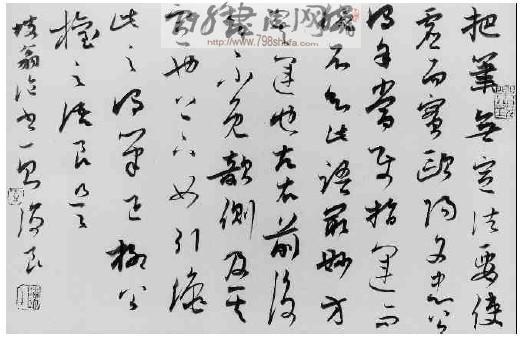 把筆無定法要使
虛而寬歐陽文忠公
謂余當使指運而
腕不知此語最妙方
其運也左右前後
卻不免欹側及其
定也上下如引繩
此之謂筆正柳公
權之語良是
坡翁論書一則
www.798shufa.com